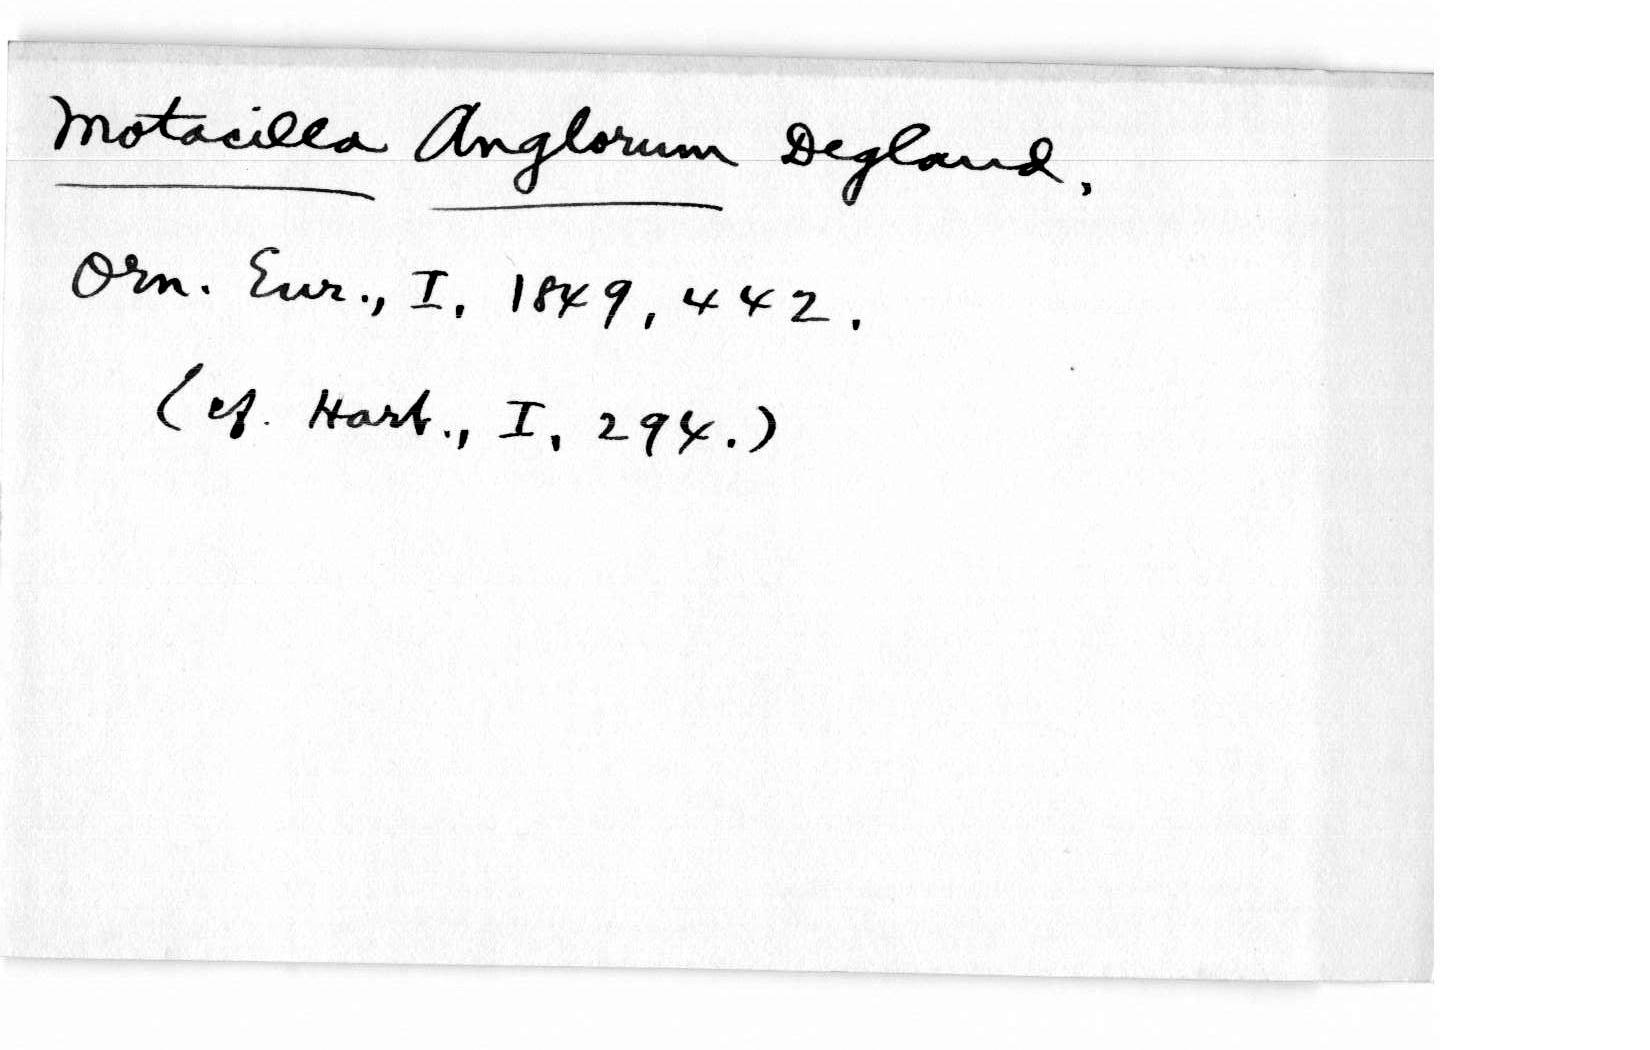 Motacilla Anglorum Degland,
Orn. Eur., I, 1849, 442.
(cf. Hart., I, 294.)